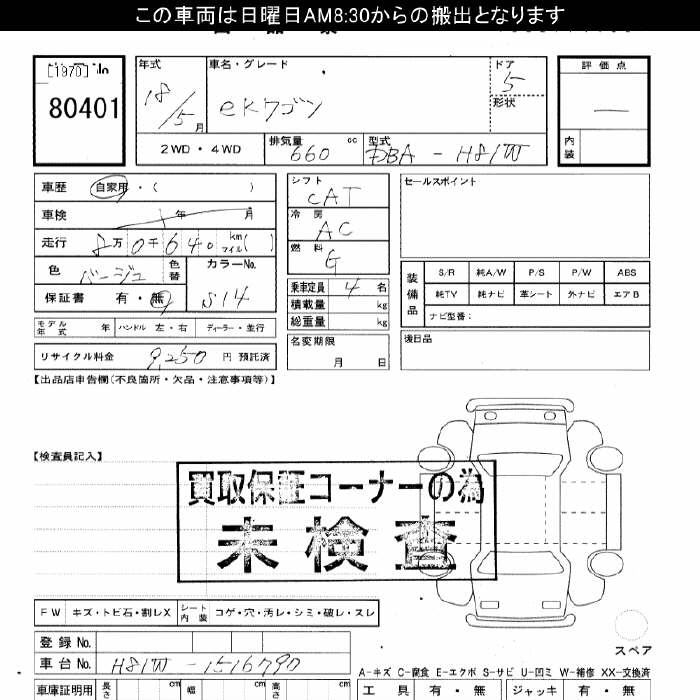 この車両は日曜日AM8:30からの搬出となります
[1970] No
80401
年式
18/5月
車名・グレード
eKワゴン
ドア
5
形状
評価点
―
内装
2WD・4WD
排気量
660 cc
型式
DBA - H81W
車歴 自家用・( )
車検 年 月
走行 8万0千640 km マイル( )
色 ベージュ 色替
カラーNo. S14
保証書 有・無
シフト CAT
冷房 AC
燃料 G
乗車定員 4 名
積載量 kg
総重量 kg
セールスポイント
装備品
S/R 純A/W P/S P/W ABS
純TV 純ナビ 革シート 外ナビ エアB
ナビ型番:
モデル年式 年 ハンドル 左・右 ディーラー・並行
リサイクル料金 9,250 円 預託済
名変期限 月 日
後日品
【出品店申告欄(不良箇所・欠品・注意事項等)】
【検査員記入】
買取保証コーナーの為
未検査
FW キズ・トビ石・割レX シート内装 コゲ・穴・汚レ・シミ・破レ・スレ
スペア
登録No.
車台No. H81W-1516790
A-キズ C-腐食 E-エクボ S-サビ U-凹ミ W-補修 XX-交換済
車庫証明用 長さ cm 幅 cm 高さ cm
工具 有・無 ジャッキ 有・無